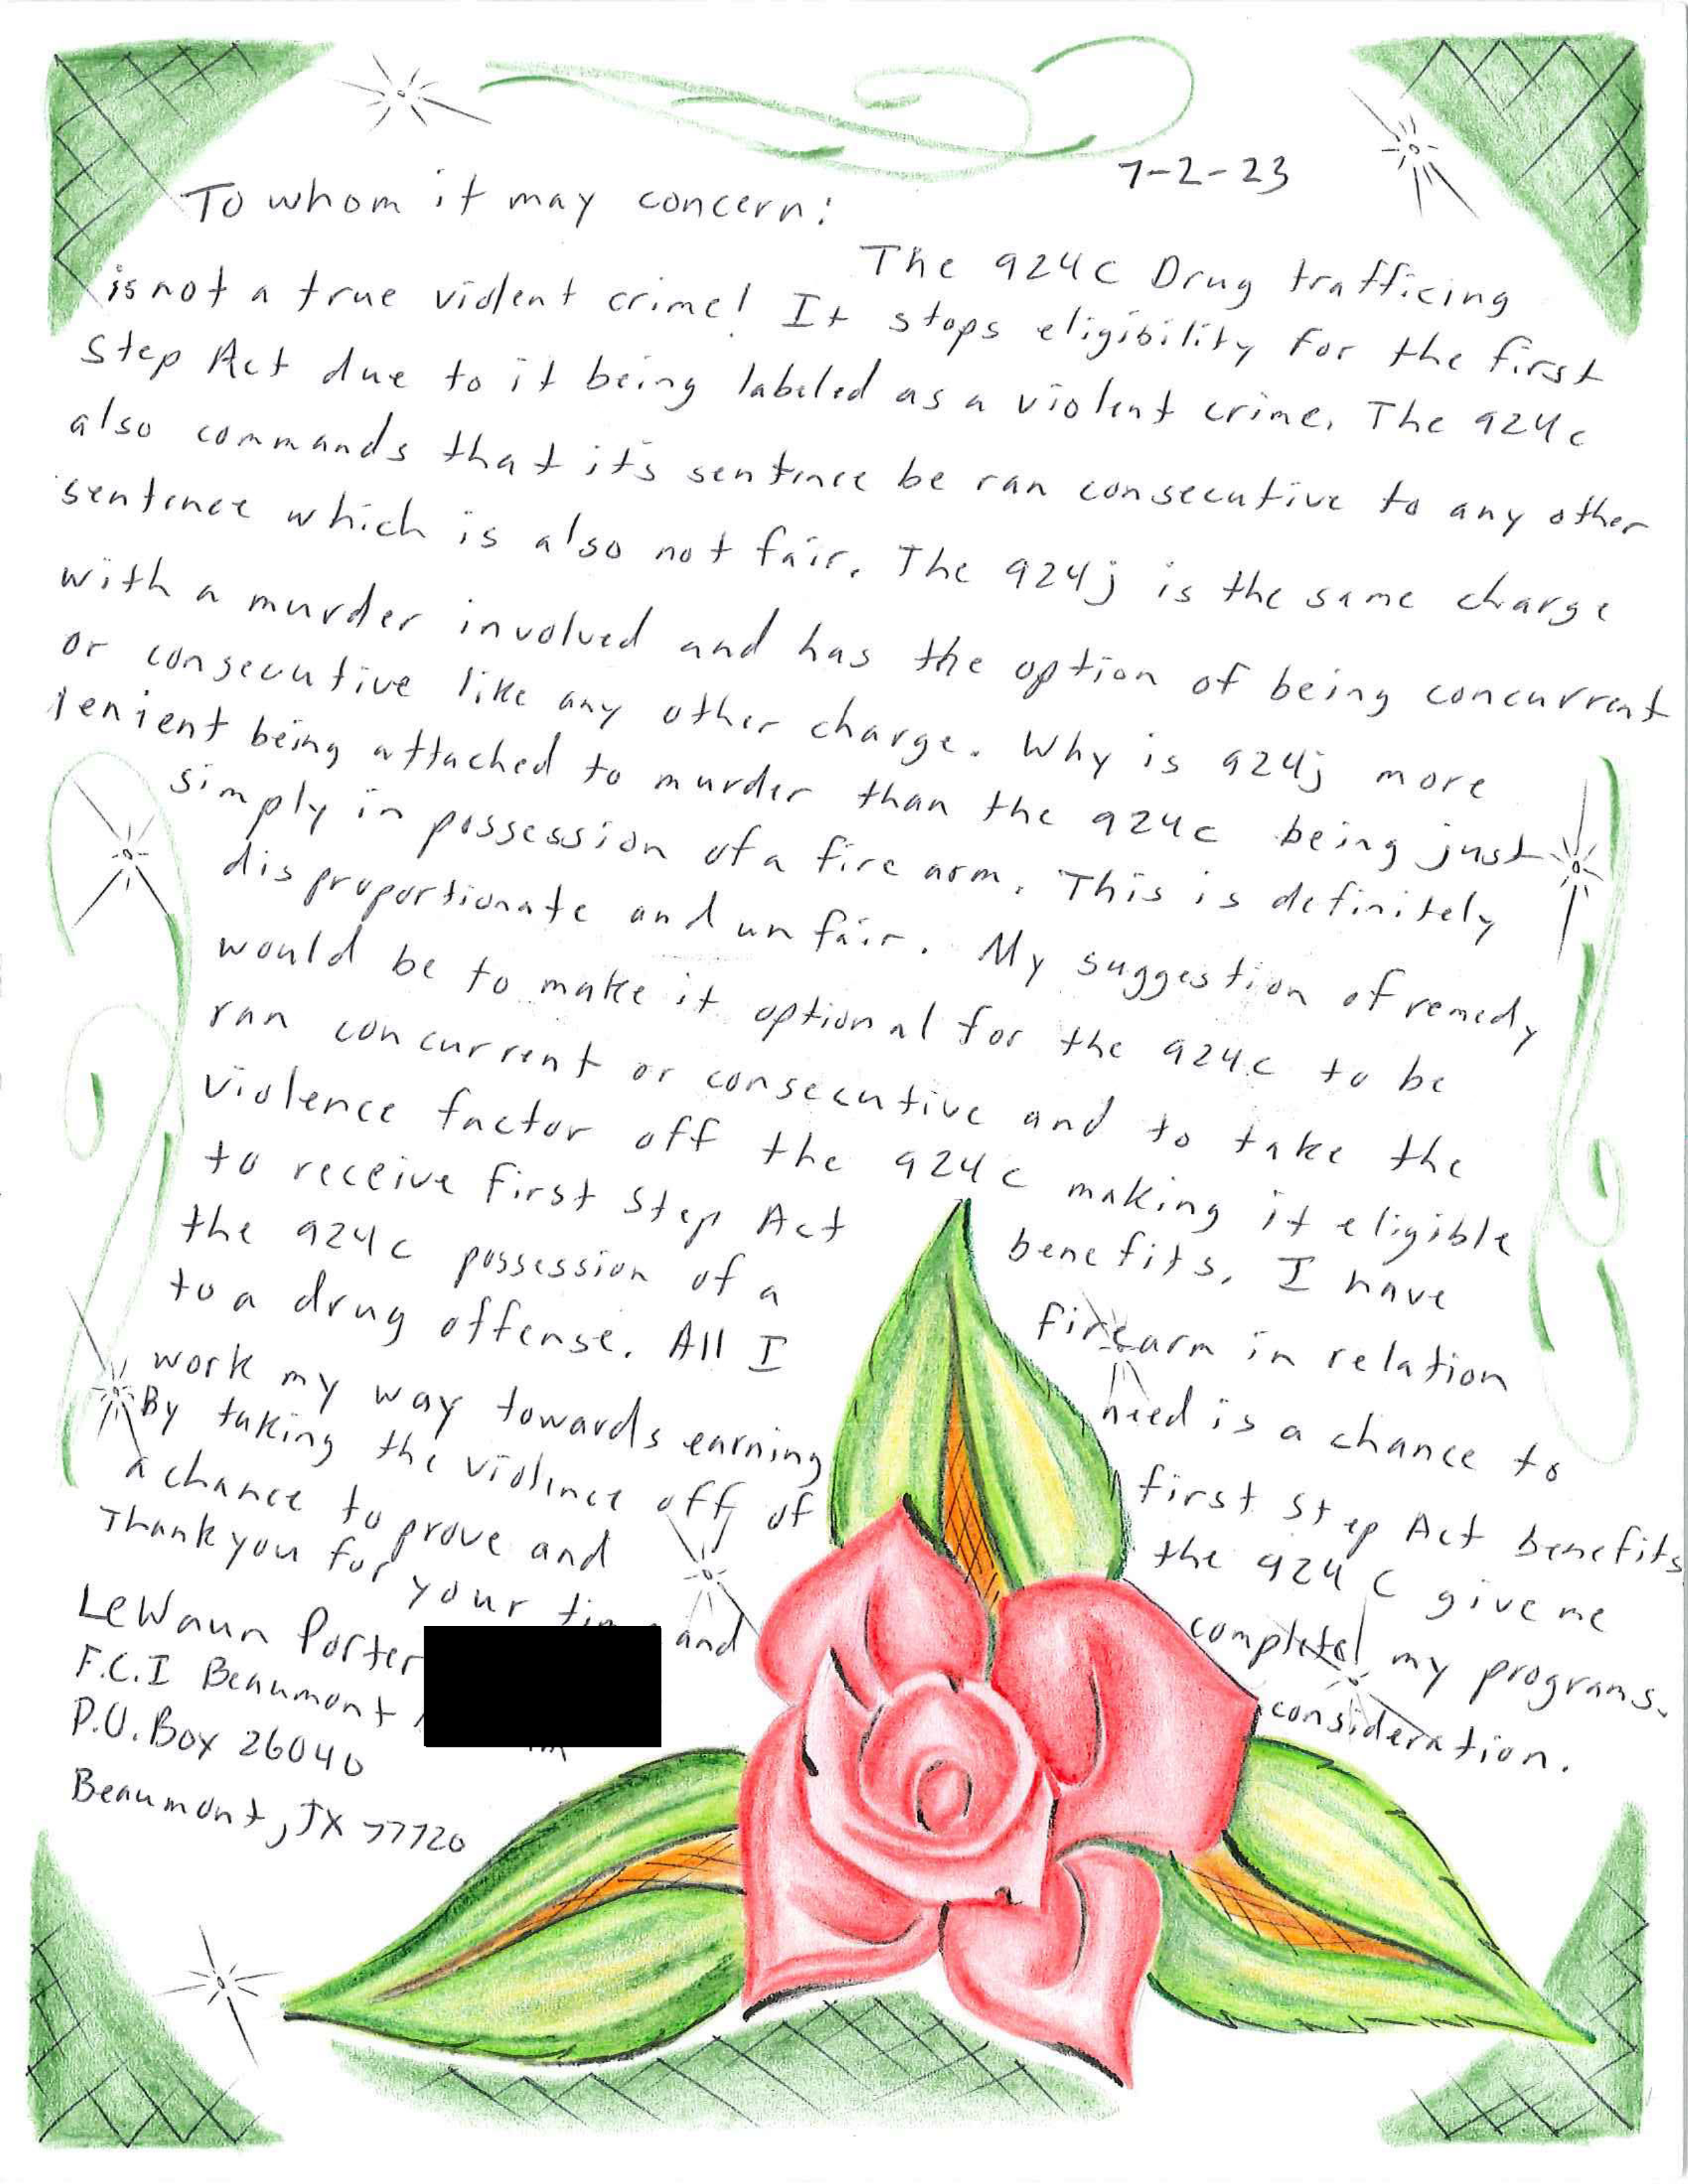 7-2-23
To whom it may concern:
The 924c Drug trafficing
is not a true violent crime! It stops eligibility for the first
Step Act due to it being labeled as a violent crime. The 924c
also commands that it's sentence be ran consecutive to any other
sentence which is also not fair. The 924j is the same charge
with a murder involved and has the option of being concurrent
or consecutive like any other charge. Why is 924j more
lenient being attached to murder than the 924c being just
simply in possession of a fire arm. This is definitely
disproportionate and unfair. My suggestion of remedy
would be to make it optional for the 924c to be
ran concurrent or consecutive and to take the
violence factor off the 924c making it eligible
to receive first Step Act benefits. I have
the 924c possession of a firearm in relation
to a drug offense. All I need is a chance to
work my way towards earning first Step Act benefits
By taking the violence off of the 924c give me
a chance to prove and complete my programs.
Thank you for your time and consideration.
LeWaun Porter
F.C.I Beaumont
P.O. Box 26040
Beaumont, TX 77720